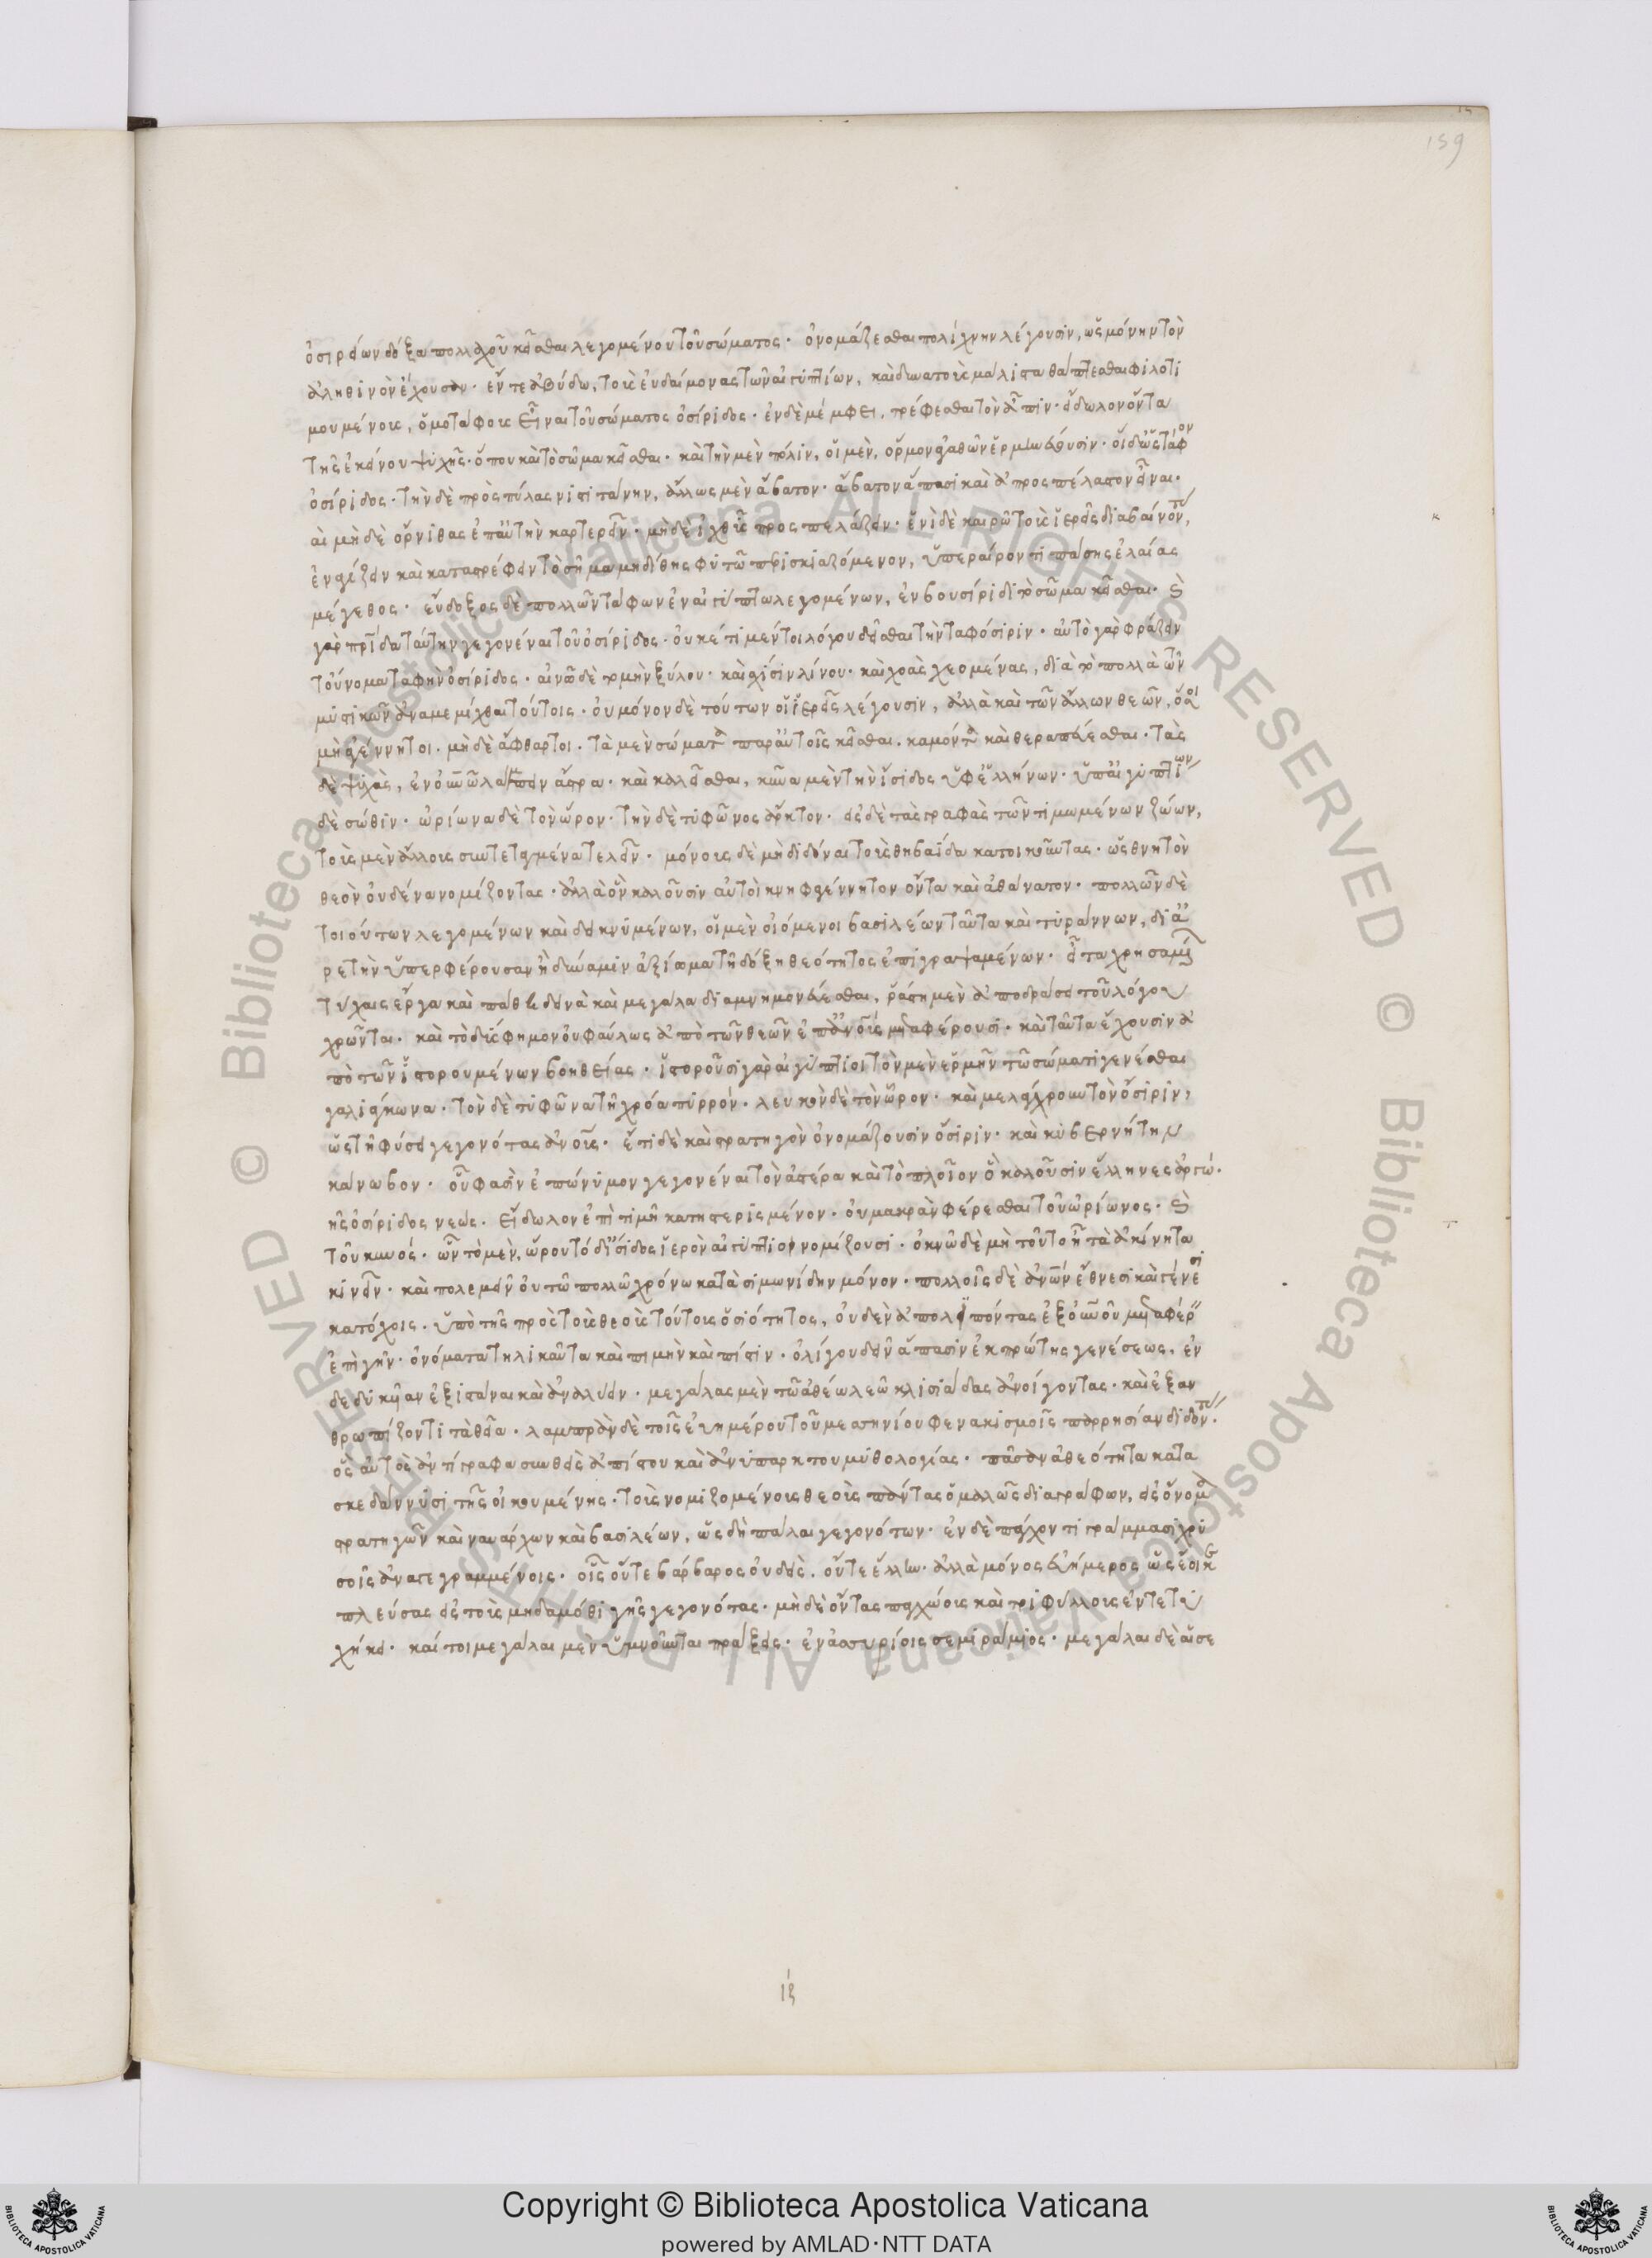 159
ὀσιρείων δόξα πολλαχοῦ κεῖσθαι λεγομένου τοῦ σώματος· ὀνομάζεσθαι πολίχνην λέγουσιν, ὡς μόνην τὸν
ἀληθινὸν ἔχουσαν· ἔν τε ἀβύδω, τοὺς εὐδαίμονας τῶν αἰγυπτίων, καὶ δυνατοὺς μάλιστα θάπτεσθαι φιλοτι
μουμένοις, ὁμοτάφοις εἶναι τοῦ σώματος ὀσίριδος· ἐν δὲ μέμφει, τρέφεσθαι τὸν ἆπιν· εἴδωλον ὄντα
τῆς ἐκείνου ψυχῆς· ὅπου καὶ τὸ σῶμα κεῖσθαι· καὶ τὴν μὲν πόλιν, οἱ μὲν, ὅρμον ἀγαθῶν ἑρμηνεύουσιν· οἱ δ' ὡς τάφον
ὀσίριδος· τὴν δὲ πρὸς πύλας νιστιτάνην, ἄλλως μὲν ἄβατον· ἄβατον ἅπασι καὶ ἀπροσπέλαστον εἶναι·
αι μὴ δὲ ὄρνιθας ἐπ' αὐτὴν καρτερεῖν· μὴ δὲ ἰχθῦς προσπελάζειν· ἑνὶ δὲ καιρῶ τοὺς ἱερεῖς διαβαίνοντας,
ἐναγίζειν καὶ καταστρέφειν τὸ σῆμα μηδίθης φυτῶ περισκιαζόμενον, ὑπεραίροντι πάσης ἐλαίας
μέγεθος· εὔδοξος δὲ πολλῶν τάφων ἐν αἰγύπτω λεγομένων, ἐν βουσίριδι τὸ σῶμα κεῖσθαι· καὶ
γὰρ πατρίδα ταύτην γεγονέναι τοῦ ὀσίριδος· οὐκέτι μέντοι λόγου δεῖσθαι τὴν ταφόσιριν· αὐτὸ γὰρ φράζειν
τοὔνομα ταφὴν ὀσίριδος· αἰνῶ δὲ τομὴν ξύλου· καὶ σχίσιν λίνου· καὶ χοὰς χεομένας, διὰ τὸ πολλὰ τῶν
μυστικῶν ἀναμεμίχθαι τούτοις· οὐ μόνον δὲ τούτων οἱ ἱερεῖς λέγουσιν, ἀλλὰ καὶ τῶν ἄλλων θεῶν, ὅσοι
μὴ ἀγέννητοι. μὴ δὲ ἄφθαρτοι. τὰ μὲν σώματα παρ' αὐτοῖς κεῖσθαι. καμόντα καὶ θεραπεύεσθαι. τὰς
δὲ ψυχὰς, ἐν οὐρανῶ λάμπειν ἄστρα. καὶ καλεῖσθαι, κύνα μὲν τὴν ἴσιδος ὑφ' ἑλλήνων· ὑπ' αἰγυπτίων
δὲ σώθιν. ὠρίωνα δὲ τὸν ὧρον· τὴν δὲ τυφῶνος ἄρκτον· εἰς δὲ τὰς γραφὰς τῶν τιμωμένων ζώων,
τοὺς μὲν ἄλλους συντεταγμένα τελεῖν· μόνους δὲ μὴ διδόναι τοὺς θηβαΐδα κατοικοῦντας· ὡς θνητὸν
θεὸν οὐδένα νομίζοντας· ἀλλὰ ὃν καλοῦσιν αὐτοὶ κνὴφ ἀγέννητον ὄντα καὶ ἀθάνατον· πολλῶν δὲ
τοιούτων λεγομένων καὶ δεικνυμένων, οἱ μὲν οἰόμενοι βασιλέων ταῦτα καὶ τυράννων, δι' ἀ
ρετὴν ὑπερφέρουσαν ἢ δύναμιν ἀξίωμα τῆ δόξη θεότητος ἐπιγραψαμένων· εἶτα χρησαμένων
τύχαις ἔργα καὶ πάθη δεινὰ καὶ μεγάλα διαμνημονεύεσθαι, ῥάστη μὲν ἀποδράσει τοῦ λόγου
χρῶνται. καὶ τὸ δύσφημον οὐ φαύλως ἀπὸ τῶν θεῶν ἐπ' ἀνθρώπους μεταφέρουσι. καὶ ταῦτα ἔχουσιν ἀ
πὸ τῶν ἱστορουμένων βοηθείας· ἱστοροῦσι γὰρ αἰγύπτιοι τὸν μὲν ἑρμῆν τῶ σώματι γενέσθαι
γαλιάγκωνα· τὸν δὲ τυφῶνα τῆ χρόα πυρρόν. λευκὸν δὲ τὸν ὧρον· καὶ μελάγχρουν τὸν ὄσιριν,
ὡς τῆ φύσει γεγονότας ἀνθρώπους. ἔτι δὲ καὶ στρατηγὸν ὀνομάζουσιν ὄσιριν· καὶ κυβερνήτην
κάνωβον· οὗ φασὶν ἐπώνυμον γεγονέναι τὸν ἀστέρα καὶ τὸ πλοῖον ὃ καλοῦσιν ἕλληνες ἀργώ.
τῆς ὀσίριδος νεὼς. εἴδωλον ἐπὶ τιμῆ κατηστερισμένον· οὐ μακρὰν φέρεσθαι τοῦ ὠρίωνος. καὶ
τοῦ κυνός. ὧν τὸ μὲν, ὥρου τὸ δ' ἴσιδος ἱερὸν αἰγύπτιοι νομίζουσι. ὀκνῶ δὲ μὴ τοῦτο ἦ τὰ ἀκίνητα
κινεῖν· καὶ πολεμεῖν οὐ τῶ πολλῶ χρόνω κατὰ σιμωνίδην μόνον. πολλοῖς δὲ ἀνθρώπων ἔθνεσι καὶ γένεσι
κατόχοις. ὑπὸ τῆς πρὸς τοὺς θεοὺς τούτους ὁσιότητος, οὐδὲν ἀπολιπόντας ἐξ οὐρανοῦ μεταφέρειν
ἐπὶ γῆν· ὀνόματα τηλικαῦτα καὶ τιμὴν καὶ πίστιν. ὀλίγου δεῖν ἅπασιν ἐκ πρώτης γενέσεως, ἐν
δεδυκυῖαν ἐξιστάναι καὶ ἀναλύειν. μεγάλας μὲν τῶ ἀθέω λεῶ κλισιάδας ἀνοίγοντας. καὶ ἐξαν
θρωπίζοντι τὰ θεῖα. λαμπρὰν δὲ τοῖς εὐημέρου τοῦ μεσσηνίου φενακισμοῖς παρρησίαν διδόντας.
ὃς αὐτὸς ἀντίγραφα συνθεὶς ἀπίστου καὶ ἀνυπάρκτου μυθολογίας. πᾶσαν ἀθεότητα κατα
σκεδάννυσι τῆς οἰκουμένης. τοὺς νομιζομένους θεοὺς πάντας ὁμαλῶς διαγράφων, εἰς ὄνομα
στρατηγῶν καὶ ναυάρχων καὶ βασιλέων, ὡς δὴ πάλαι γεγονότων. ἐν δὲ πάγχοντι γράμμασι χρυ
σοῖς ἀναγεγραμμένοις. οἷς οὔτε βάρβαρος οὐδεὶς. οὔτε ἕλλην. ἀλλὰ μόνος εὐήμερος ὡς ἔοικε
πλεύσας εἰς τοὺς μηδαμόθι γῆς γεγονότας. μὴ δὲ ὄντας παγχώους καὶ τριφύλλους ἐντετύ
χηκε. καί τοι μεγάλαι μὲν ὑμνοῦνται πράξεις. ἐν ἀσσυρίοις σεμιράμιος. μεγάλαι δὲ αἱ σε
ιξ
Copyright © Biblioteca Apostolica Vaticana
powered by AMLAD·NTT DATA